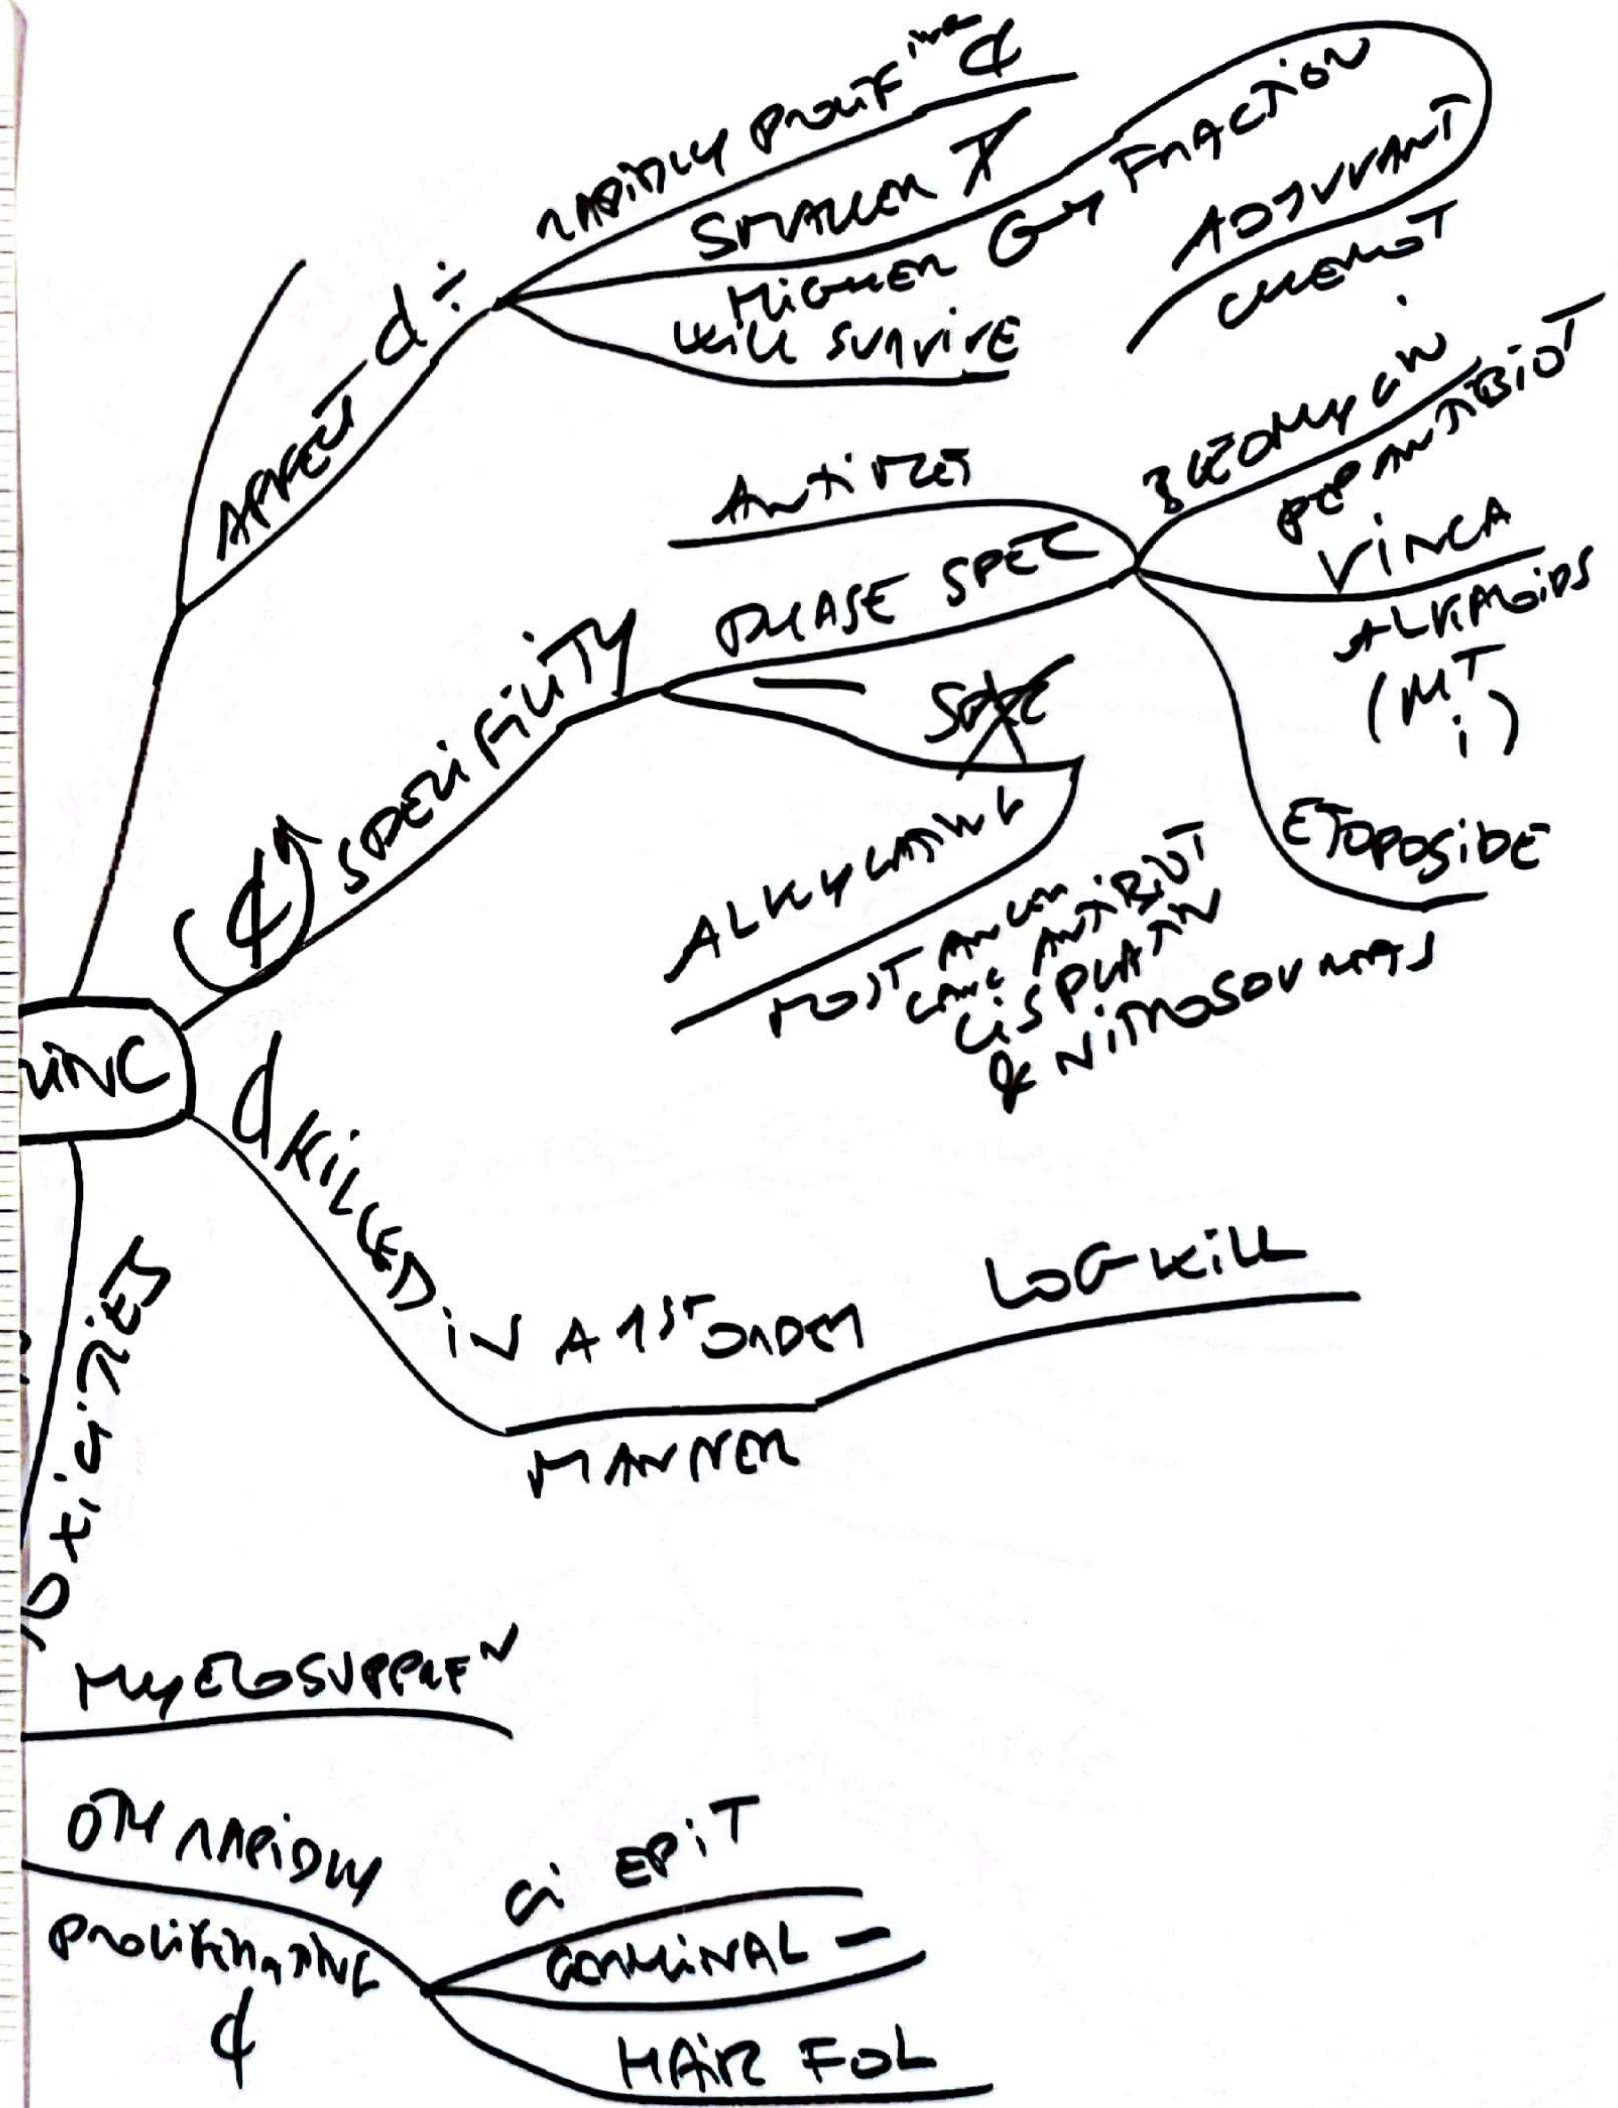 RAPIDLY PROLIF ing ₵
SMALLER T
HIGHER GR FRACTION
ADJUVANT
CHEMOT
WILL SURVIVE
AFFECT d÷
ANTIMET
PHASE SPEC
BLEOMYCIN
PEP ANTIBIOT
VINCA
ALKALOIDS
(MT
i)
ETOPOSIDE
— SPEC
ALKYLATING
MOST
ANTIBIOT
CISPLATIN
& NITROSOUREAS
₵ SPECIFICITY
₵ KILLED IN A 1ST ORDER
MANNER
LOG KILL
OXICITIES
MYELOSUPPREN
OTH RAPIDLY
PROLIFERATING
₵
GI EPIT
GERMINAL —
HAIR FOL